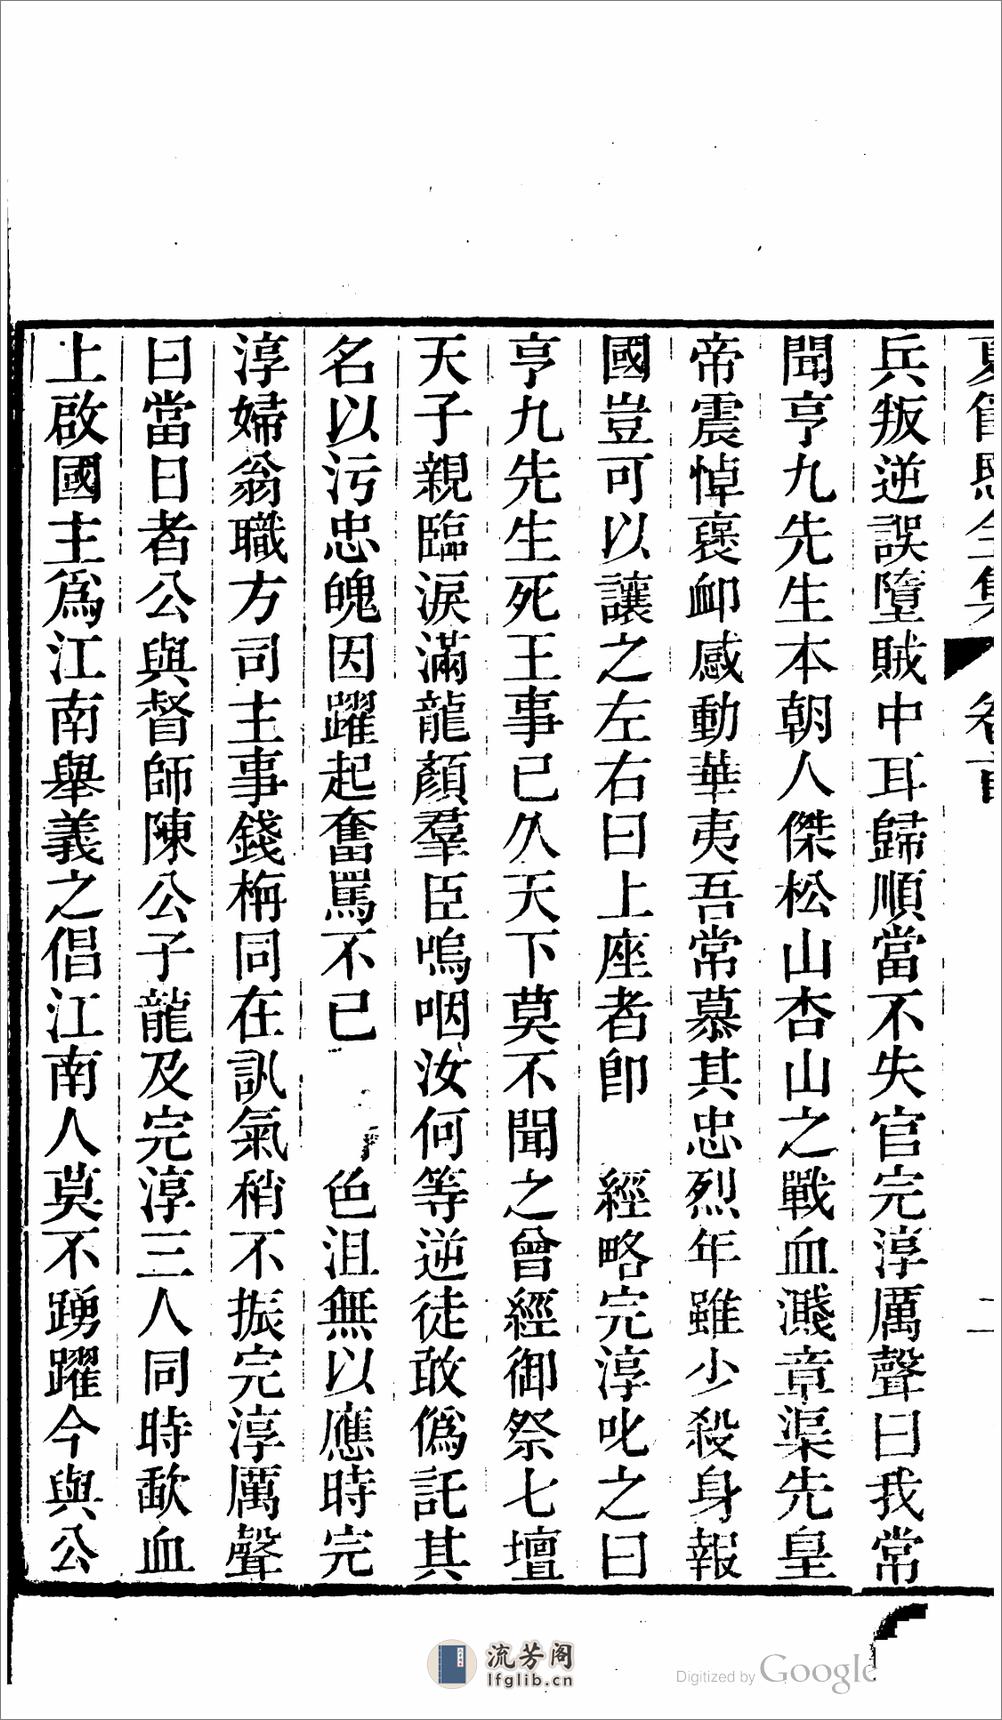 夏節愍全集 卷首 二
兵叛逆誤墮賊中耳歸順當不失官完淳厲聲曰我常
聞亨九先生本朝人傑松山杏山之戰血濺章渠先皇
帝震悼褒卹感動華夷吾常慕其忠烈年雖少殺身報
國豈可以讓之左右曰上座者卽 經略完淳叱之曰
亨九先生死王事已久天下莫不聞之曾經御祭七壇
天子親臨淚滿龍顏羣臣嗚咽汝何等逆徒敢僞託其
名以污忠魄因躍起奮罵不已 色沮無以應時完
淳婦翁職方司主事錢栴同在訊氣稍不振完淳厲聲
曰當日者公與督師陳公子龍及完淳三人同時歃血
上啟國主爲江南舉義之倡江南人莫不踴躍今與公
流芳阁
lfglib.cn
Digitized by Google